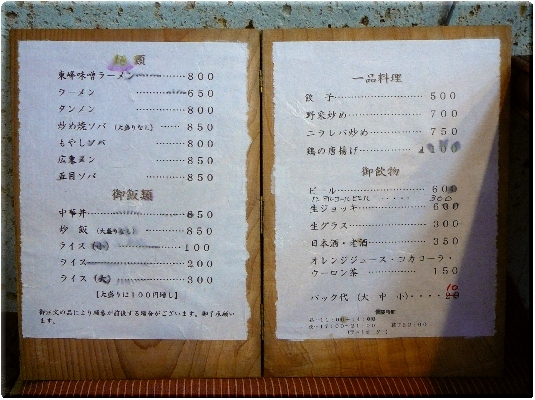 麺類
東峰味噌ラーメン 800
ラーメン 650
タンメン 800
炒め焼ソバ (大盛りなし) 850
もやしソバ 800
広東メン 850
五目ソバ 850
御飯類
中華丼 850
炒飯 (大盛りなし) 850
ライス (小) 100
ライス 200
ライス (大) 300
【大盛りは100円増し】
御注文の品により順番が前後する場合がございます。御了承願います。
一品料理
餃子 500
野菜炒め 700
ニラレバ炒め 750
鶏の唐揚げ
御飲物
ビール 600
ノンアルコールビール 300
生ジョッキ 600
生グラス 300
日本酒・老酒 350
オレンジジュース・コカコーラ・
ウーロン茶 150
10
パック代 (大 中 小) 20
営業時間